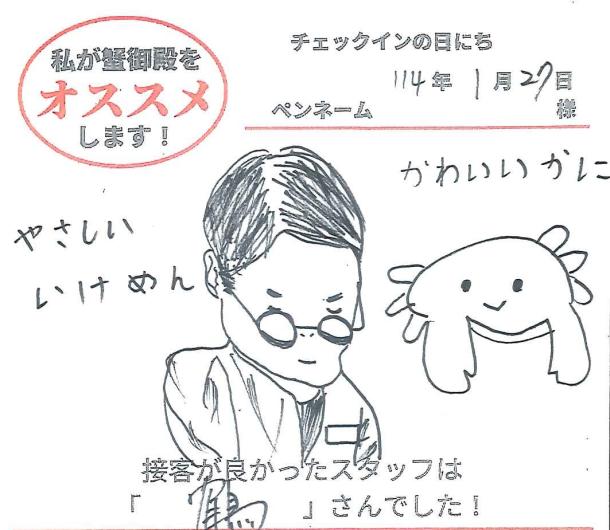 私が蟹御殿を
オススメ
します！
チェックインの日にち
114年 1月27日
ペンネーム 様
かわいいかに
やさしい
いけめん
接客が良かったスタッフは
「 」さんでした！